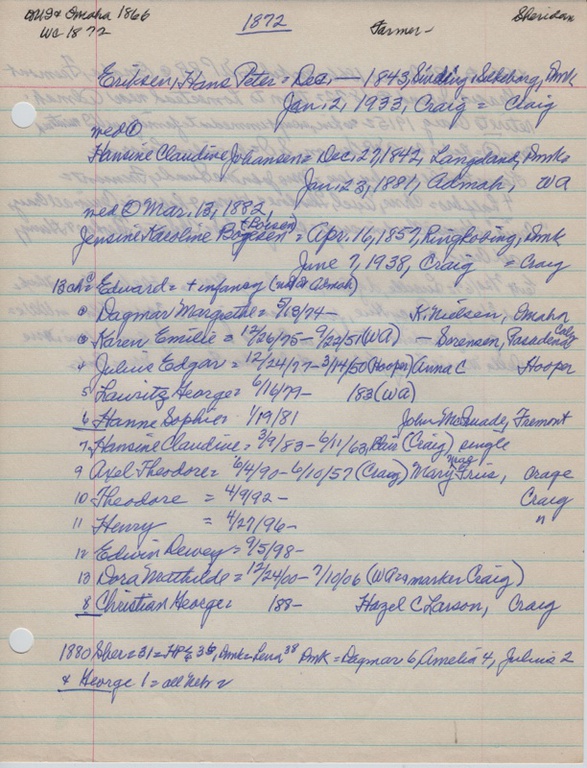 Omaha 1866 1872 Farmer - Sheridan
WC 1872
Eriksen, Hans Peter = Dec. — 1843, Sinding, Silkeborg, Dmk
Jan. 2, 1933, Craig = Craig
med ①
Hansine Claudine Johansen = Dec. 27, 1842, Langeland, Dmk =
Jan. 23, 1881, Admah, WA
med ② Mar. 13, 1882,
(+ Boisen)
Jensine Karoline = Apr. 16, 1857, Ringkobing, Dmk
June 7, 1938, Craig = Craig
13 ch = Edward = + infancy (Admah)
Dagmar Margrethe = 5/13/74 - K. Nielsen, Omaha
③ Karen Emilie = 12/26/75 - 9/22/51 (WA) - Sorensen, Pasadena Calif
4 Julius Edgar = 12/24/77 - 3/14/50 (Hooper) Anna C Hooper
5 Lauritz George = 6/16/79 - 183 (WA)
6 Hanne Sophie = 1/19/81 John McQuade, Fremont
7. Hansine Claudine = 3/9/83 - 6/11/63, Blair (Craig) single
9 Axel Theodore = 6/4/90 - 6/10/57 (Craig) Mary Mae Friis, Craig
10 Theodore = 4/9/92 - Craig
11 Henry = 4/27/96 - "
12 Edwin Dewey = 9/5/98 -
13 Dora Mathilde = 12/24/00 - 7/10/06 (WA marker Craig)
8 Christian George = 188- Hazel C Larson, Craig
1880 Sher = 31 = HP 36, Dmk = Lena 38 Dmk = Dagmar 6, Amelia 4, Julius 2
& George 1 = all Neb =